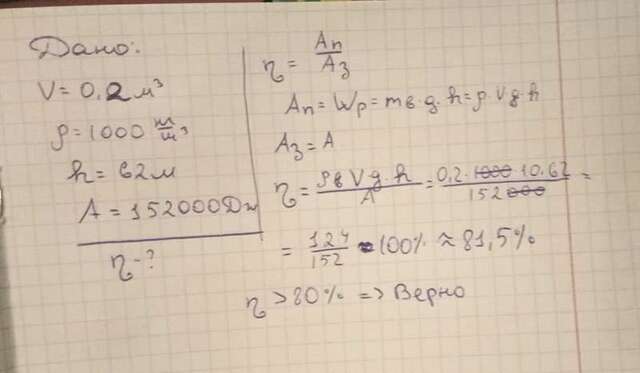 Дано:
V = 0,2 м³
ρ = 1000 м/м³
h = 62 м
A = 152000 Дж
η - ?
η = Aп/Aз
Aп = Wp = mв·g·h = ρ V g·h
Aз = A
η = ρв V g·h/A = 0,2·1000·10·62/152000 =
= 124/152 · 100% ≈ 81,5%
η > 80% => Верно